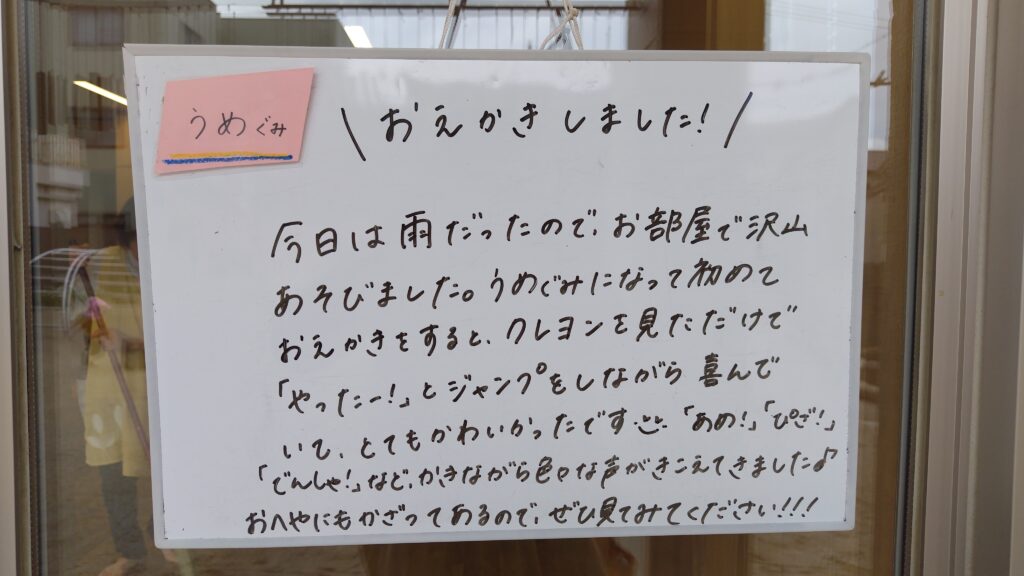 うめぐみ
\ おえかきしました! /
今日は雨だったので、お部屋で沢山
あそびました。うめぐみになって初めて
おえかきをすると、クレヨンを見ただけで
「やったー!」とジャンプをしながら喜んで
いて、とてもかわいかったです 「あめ!」「ぴざ!」
「でんしゃ!」など、かきながら色々な声がきこえてきました♪
おへやにもかざってあるので、ぜひ見てみてください!!!